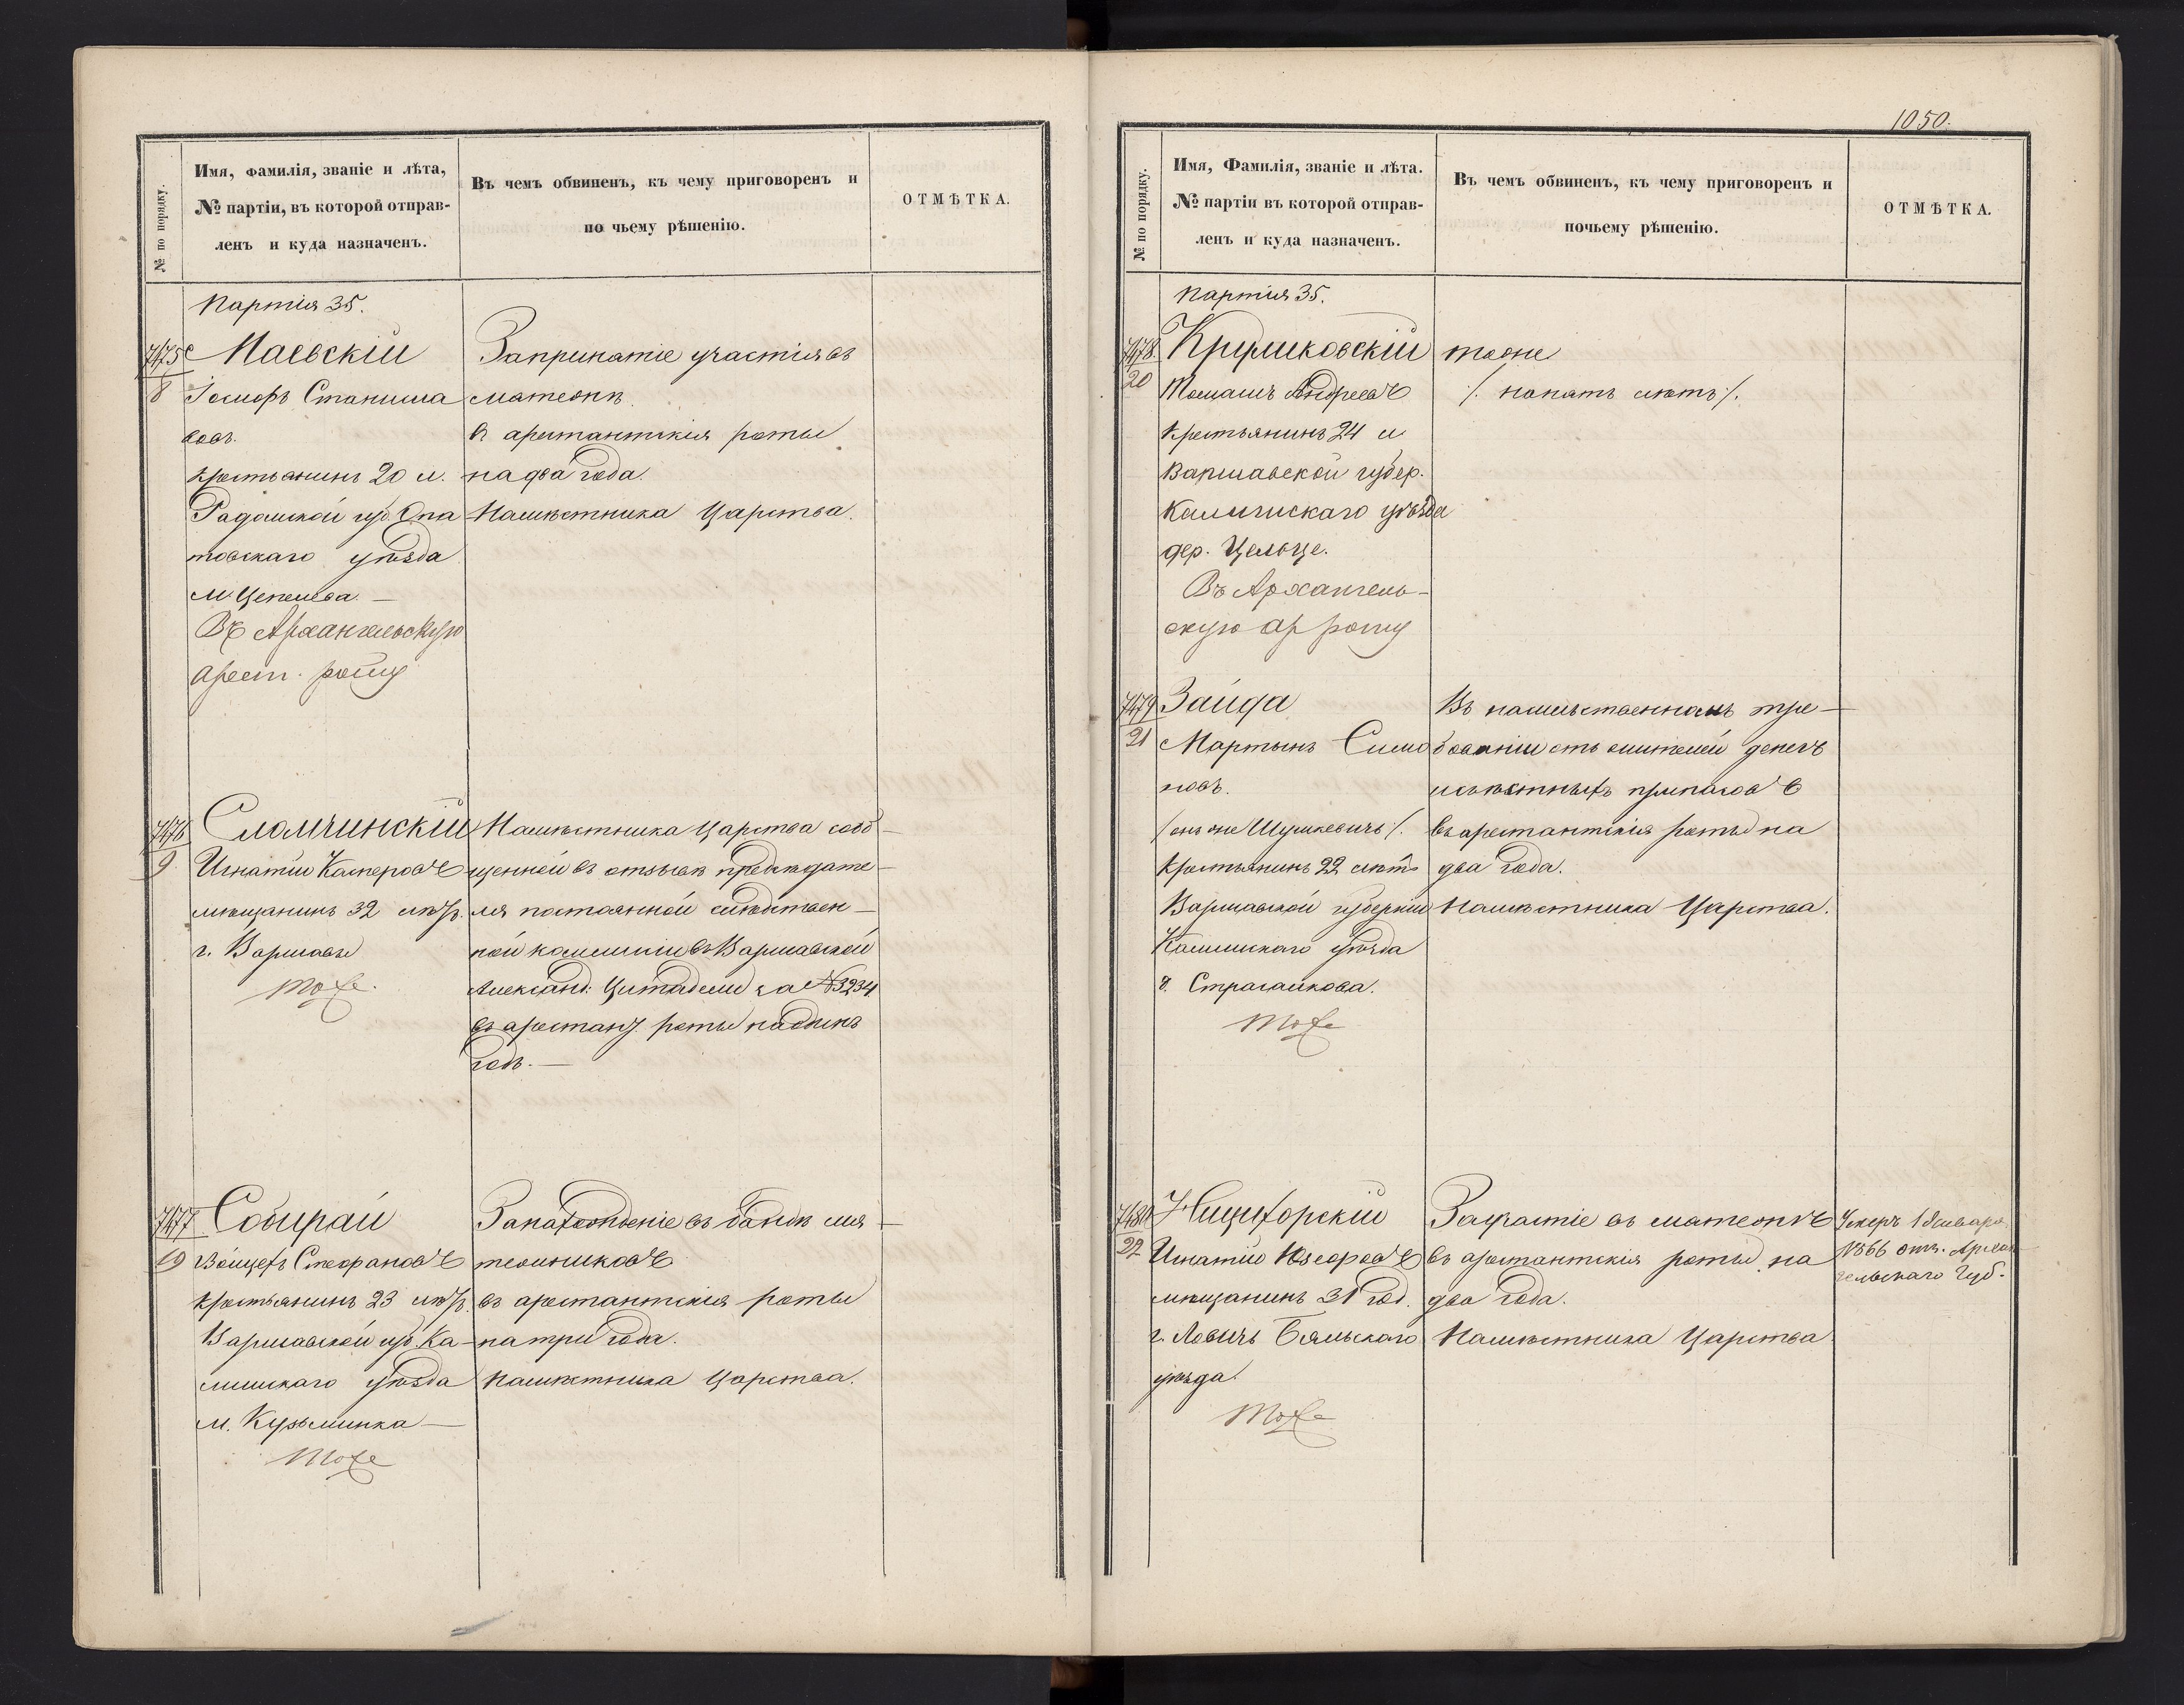 № по порядку.
Имя, фамилія, званіе и лѣта,
№ партіи, въ которой отправ-
ленъ и куда назначенъ.
Въ чемъ обвиненъ, къ чему приговоренъ и
по чьему рѣшенію.
ОТМѢТКА.
Партія 35.
7475
8
Маевскій
Станисла
вовъ.
крестьянинъ 20 л.
Радомской губ. Опа
товскаго уѣзда
м. Цепелева. —
Въ Архангельскую
арест. роту
За принатіе участія въ
мятежѣ.
въ арестантскія роты
на два года.
Намѣстника Царства.
7476
9
Сломчинскій
Игнатій Касперовъ
мѣщанинъ 32 лѣтъ.
г. Варшавы
тоже.
Намѣстника Царства сооб-
щенной въ отзывѣ предсѣдате-
ля постоянной слѣдствен-
ной комисіи въ Варшавской
Александ: Цитадели за №3234
въ арестант. роты на одинъ
годъ. —
7477
19
Собирай
Войцехъ Стефановъ
крестьянинъ 23 лѣтъ.
Варшавской губ. Ка-
лишскаго уѣзда
м. Кузьминка —
тоже
За нахожденіе въ бандѣ мя-
тежниковъ
въ арестантскія роты
на три года.
Намѣстника Царства.
1050.
№ по порядку.
Имя, Фамилія, званіе и лѣта.
№ партіи въ которой отправ-
ленъ и куда назначенъ.
Въ чемъ обвиненъ, къ чему приговоренъ и
почьему рѣшенію.
ОТМѢТКА.
Партія 35.
7478
20
Круликовскій
Томашъ Андреевъ
крестьянинъ 24 л
Варшавской губер.
Калишскаго уѣзда
дер. Цельце.
Въ Архангель-
скую ар роту
тоже
/. на пять лѣтъ /.
7479
21
Зайда
Мартынъ Симо
новъ.
/ онъ же Шушкевичъ /.
крестьянинъ 22 лѣтъ
Варшавской губерніи
Калишскаго уѣзда
тоже
Въ насильственномъ тре-
бованіи отъ жителей денегъ
и съѣстныхъ припасовъ
въ арестантскія роты на
два года.
Намѣстника Царства.
7480
22
Ницифорскій
Игнатій Юзефовъ
мѣщанинъ 31 год.
г. Ловичъ Бяльскаго
уѣзда.
тоже
За участіе въ мятежѣ
въ арестантскія роты на
два года.
Намѣстника Царства
Умеръ 1 Января
№566 отн. Архан
гельскаго Губ.